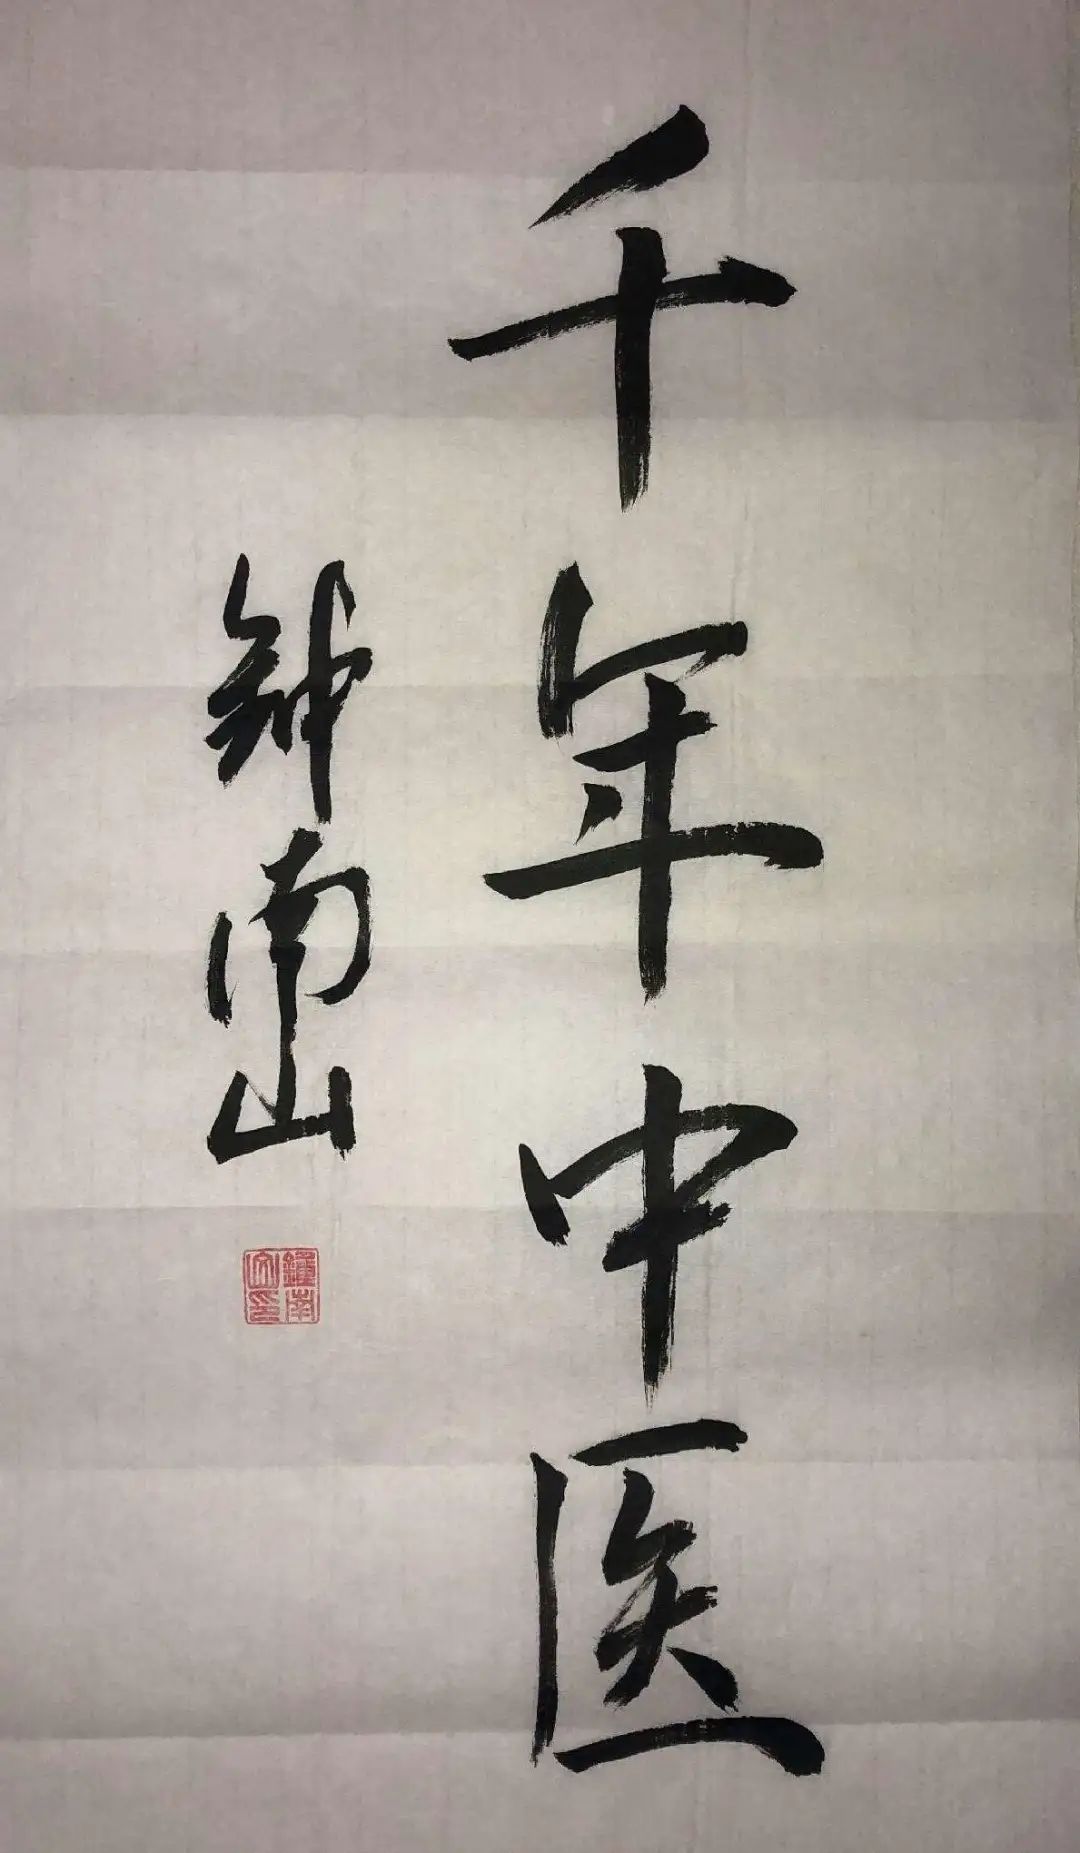 千年中医
钟南山
鐘南山印